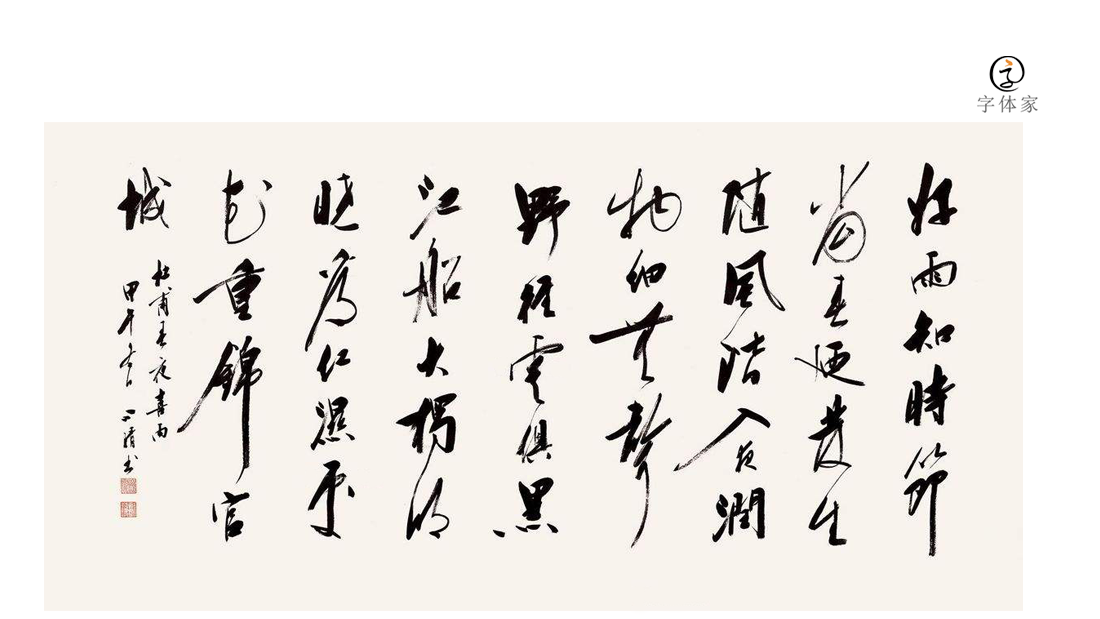 字体家
好雨知時節
當春迺發生
随風潛入夜潤
物細無聲
野徑雲俱黑
江船火獨明
曉看紅濕處
花重錦官
城
杜甫春夜喜雨
甲午 書